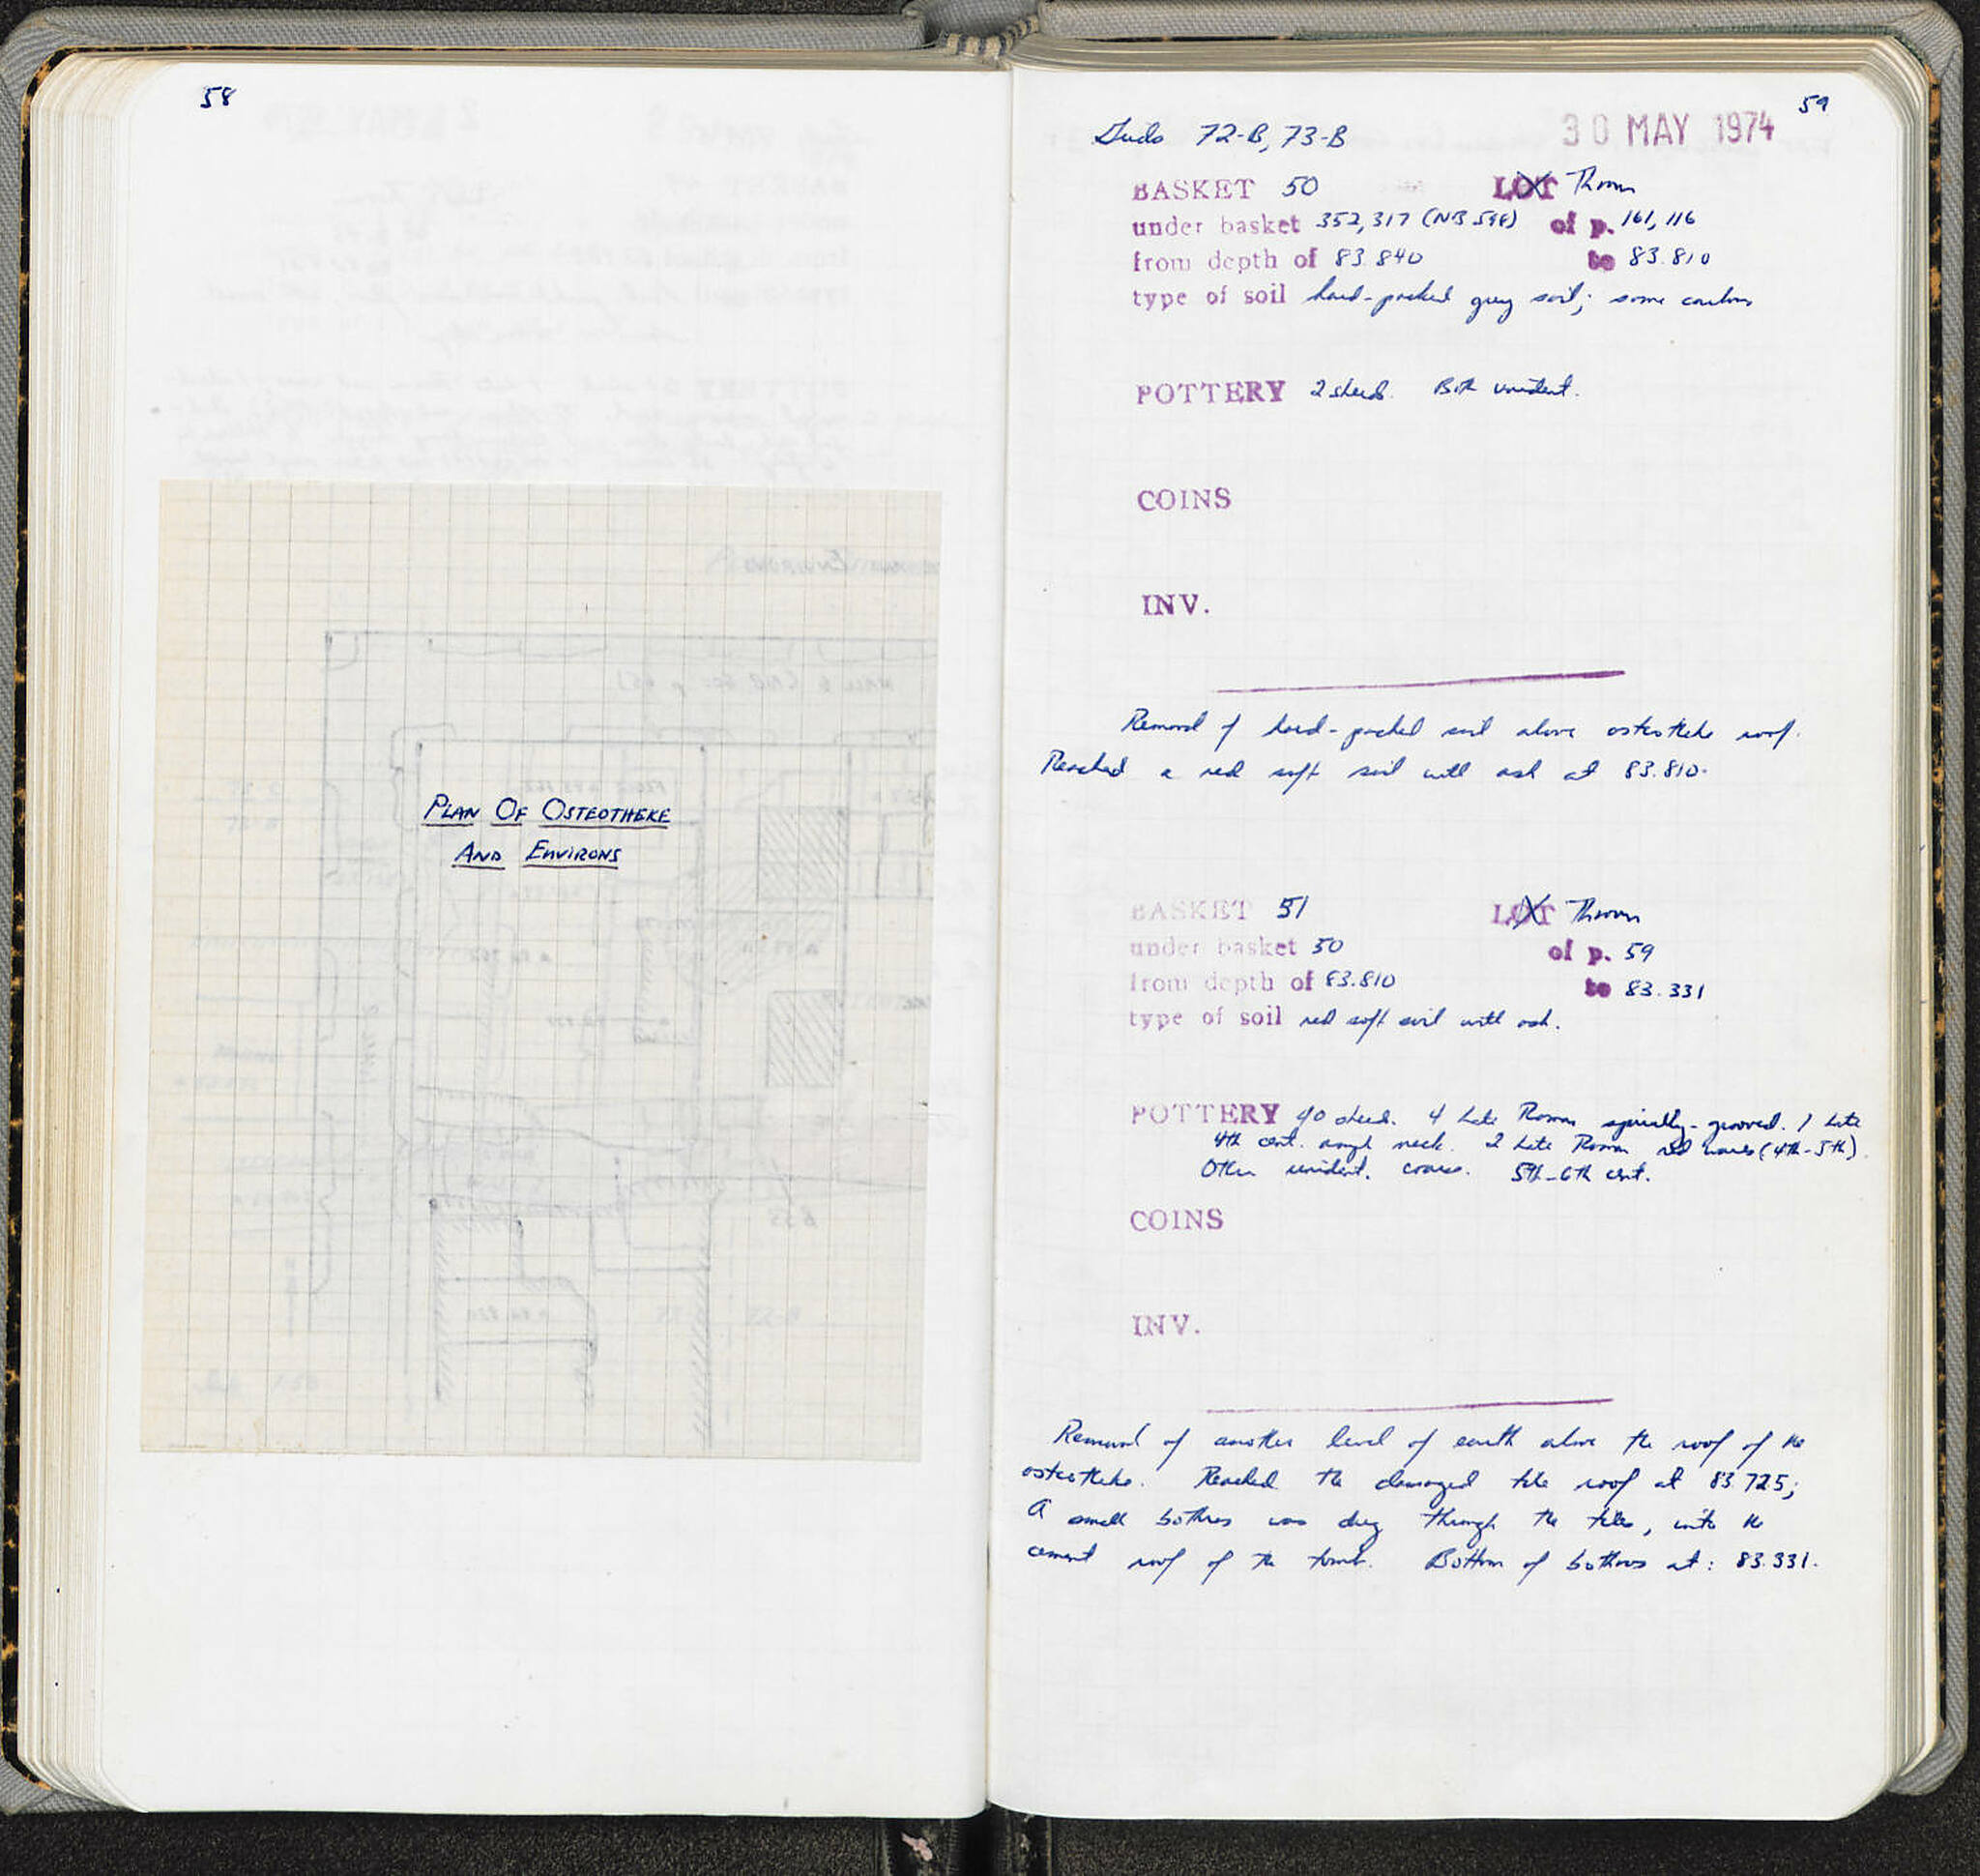 58
PLAN OF OSTEOTHEKE
AND ENVIRONS
59
30 MAY 1974
Grids 72-B, 73-B
BASKET 50 LOT Thrown
under basket 352, 317 (NB 598) of p. 161, 116
from depth of 83.840 to 83.810
type of soil hard-packed grey soil; some carbon
POTTERY 2 sherds. Both unident.
COINS
INV.
Removal of hard-packed soil above osteotheke roof.
Reached a red soft soil with ash at 83.810.
BASKET 51 LOT Thrown
under basket 50 of p. 59
from depth of 83.810 to 83.331
type of soil red soft soil with ash.
POTTERY 40 sherds. 4 Late Roman spirally-grooved. 1 Late
4th cent. amph neck. 2 Late Roman red wares (4th-5th).
Other unident. coarse. 5th-6th cent.
COINS
INV.
Removal of another level of earth above the roof of the
osteotheke. Reached the damaged tile roof at 83.725;
A small bothros was dug through the tiles, into the
cement roof of the tomb. Bottom of bothros at: 83.331.